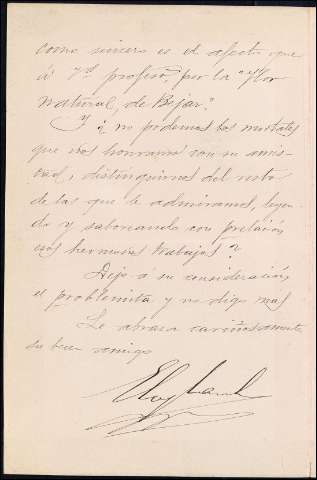 como sincero es el afecto que
á Vd. profeso, por la "Flor
Natural, de Bejar."
Y ¿no podemos los mortales
que nos honramos con su amis-
tad, distinguirnos del resto
de los que le admiramos, leyen-
do y saboreando con prelación
esos hermosos trabajos?
Dejo á su consideración
el problemita y no digo mas
Le abraza cariñosamente
su buen amigo
Eloy